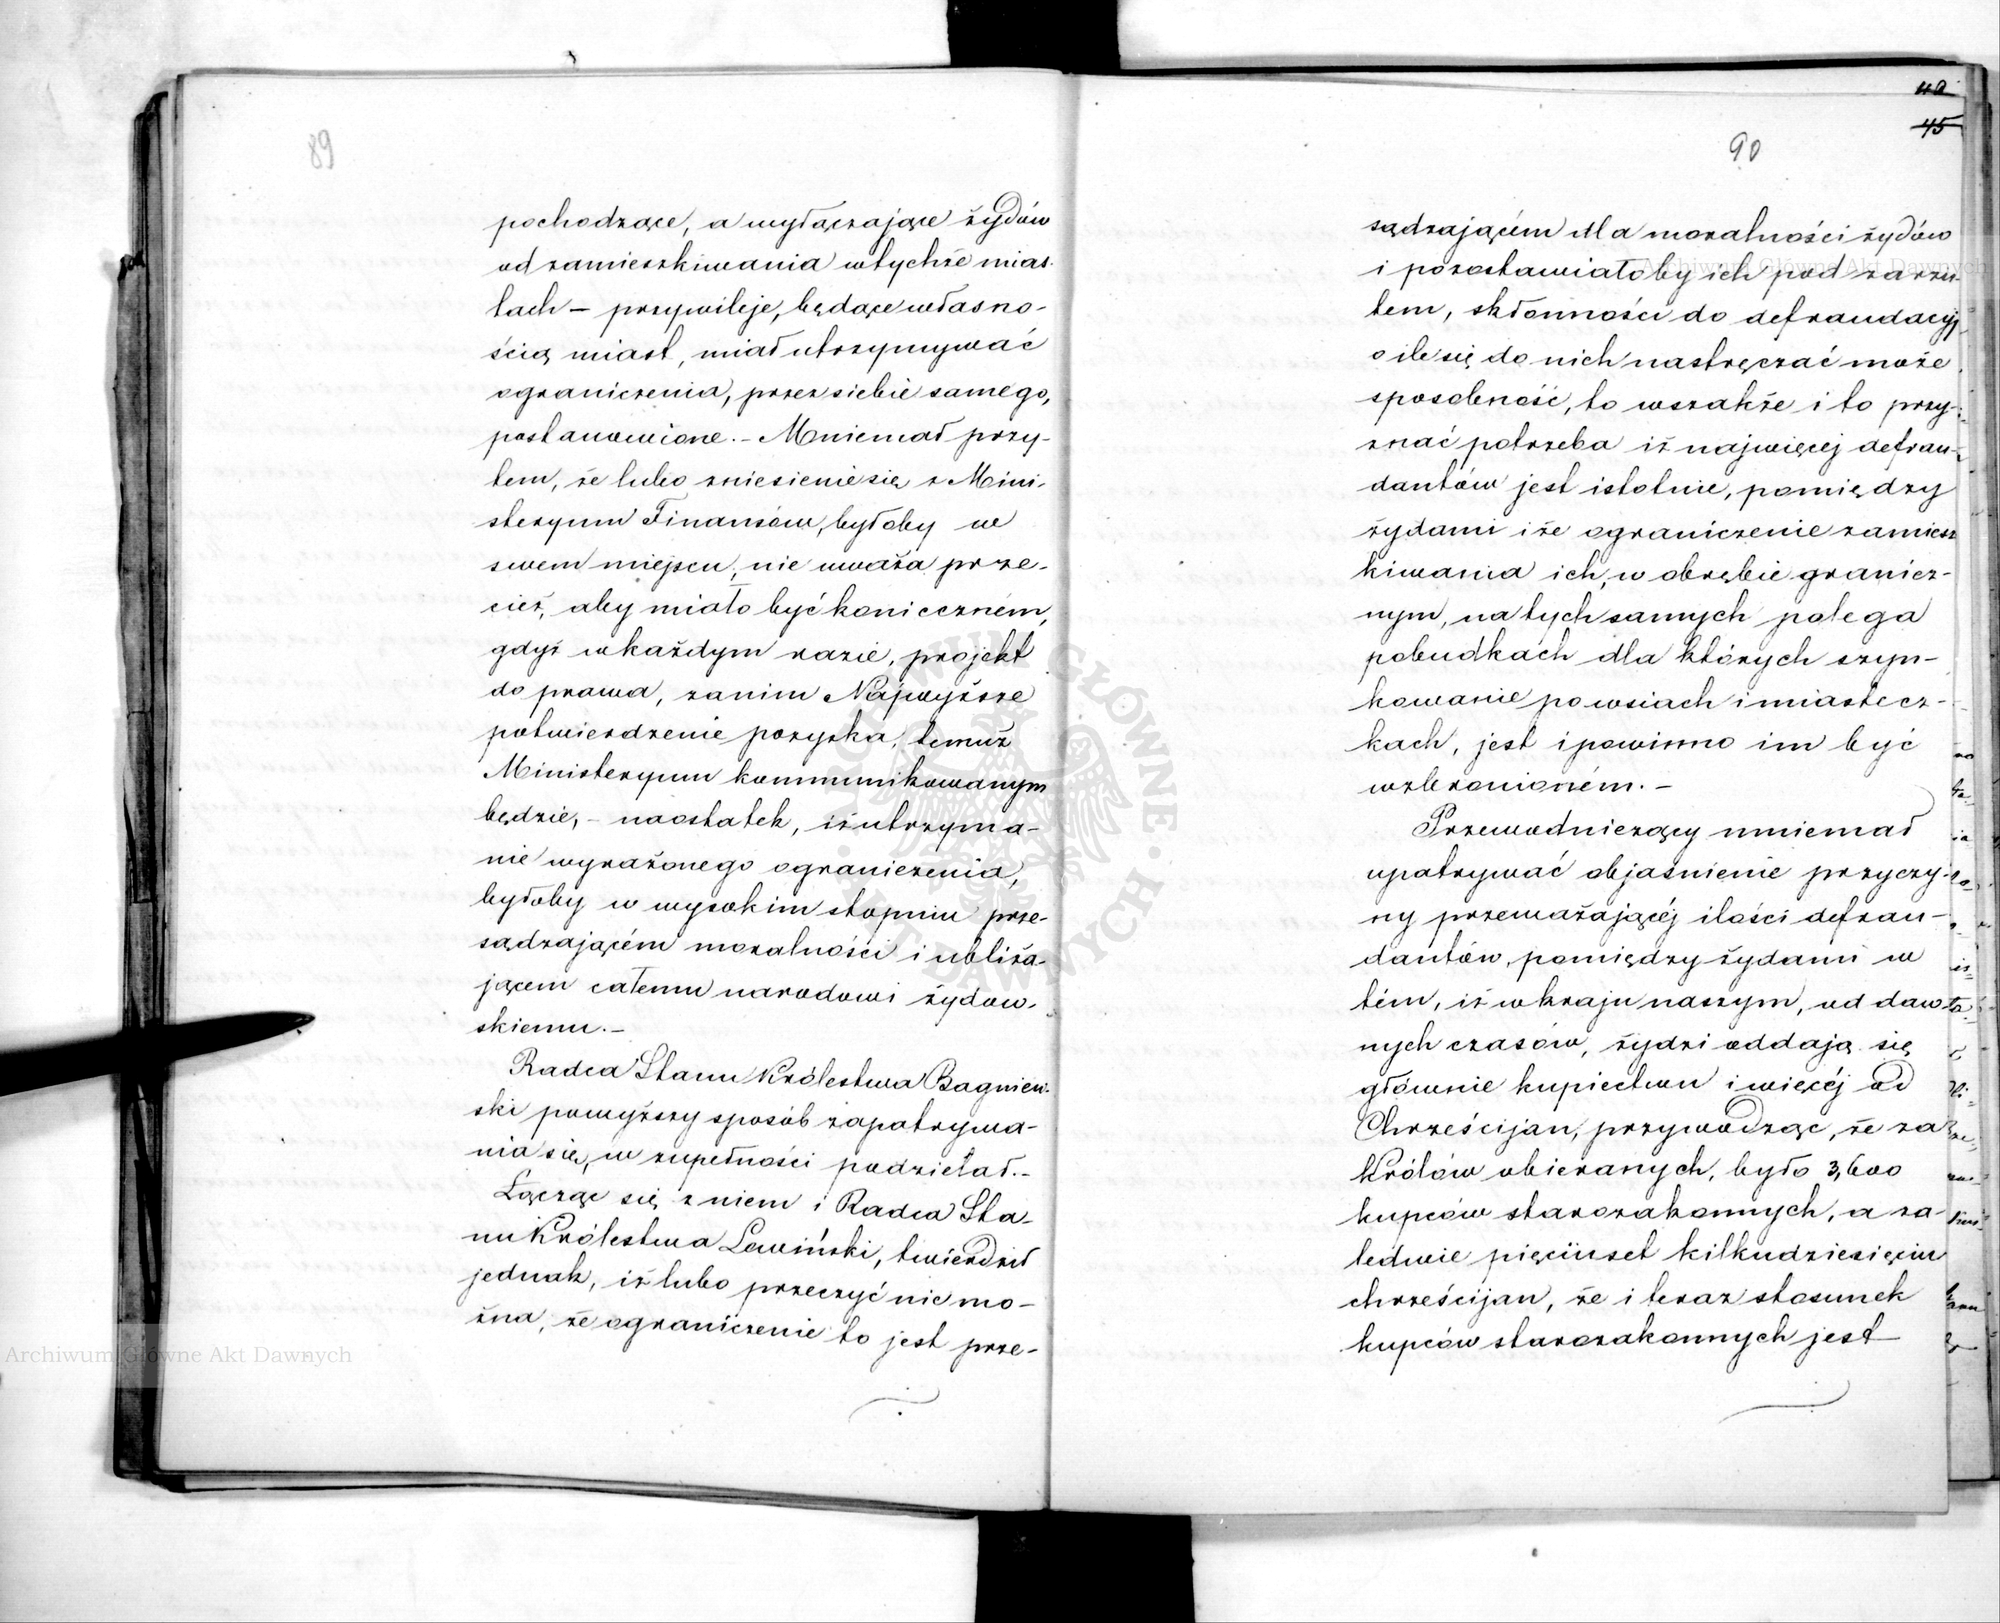 89
pochodzące, a wyłączające żydów
od zamieszkiwania w tychże mias-
tach – przywileje, będące własno-
ścią miast, miał utrzymywać
ograniczenia, przez siebie samego,
postanowione. – Mniemał przy-
tem, że lubo zniesienie się z Mini-
steryum Finansów, byłoby w
swem miejscu, nie uważa prze-
cież, aby miało być koniecznem,
gdyż w każdym razie, projekt
do prawa, zanim Najwyższe
potwierdzenie pozyska, temuż
Ministeryum kommunikowanym
będzie, – naostatek, iż utrzyma-
nie wyrażonego ograniczenia,
byłoby w wysokim stopniu prze-
sądzającém moralności i ubliża-
jącem całemu narodowi żydow-
skiemu. –
Radca Stanu Królestwa Bagniew-
ski powyższy sposób zapatrywa-
nia się, w zupełności podzielał. –
Łącząc się z niem i Radca Sta-
nu Królestwa Lewiński, twierdził
jednak, iż lubo przeczyć nie mo-
żna, że ograniczenie to jest prze-
45
90
sądzającém dla moralności żydów
i pozostawiałoby ich pod zarzu-
tem, skłonności do defraudacyj
o ile się do nich nastręczać może
sposobność, to wszakże i to przy-
znać potrzeba iż najwięcej defrau-
dantów jest istotnie, pomiędzy
żydami i że ograniczenie zamiesz
kiwania ich, w obrębie granicz-
nym, na tych samych polega
pobudkach dla których szyn-
kowanie po wsiach i miastecz-
kach, jest i powinno im być
wzbronioném. –
Przewodniczący mniemał
upatrywać objaśnienie przyczy-
ny przeważającéj ilości defrau-
dantów, pomiędzy żydami w
tém, iż w kraju naszym, od daw
nych czasów, żydzi oddają się
głównie kupiectwu i więcéj od
Chrześcijan, przywodząc, że za
Królów obieranych, było 3,600
kupców starozakonnych, a za-
ledwie pięciuset kilkudziesięciu
chrześcijan, że i teraz stosunek
kupców starozakonnych jest
Archiwum Główne Akt Dawnych
Archiwum Główne Akt Dawnych